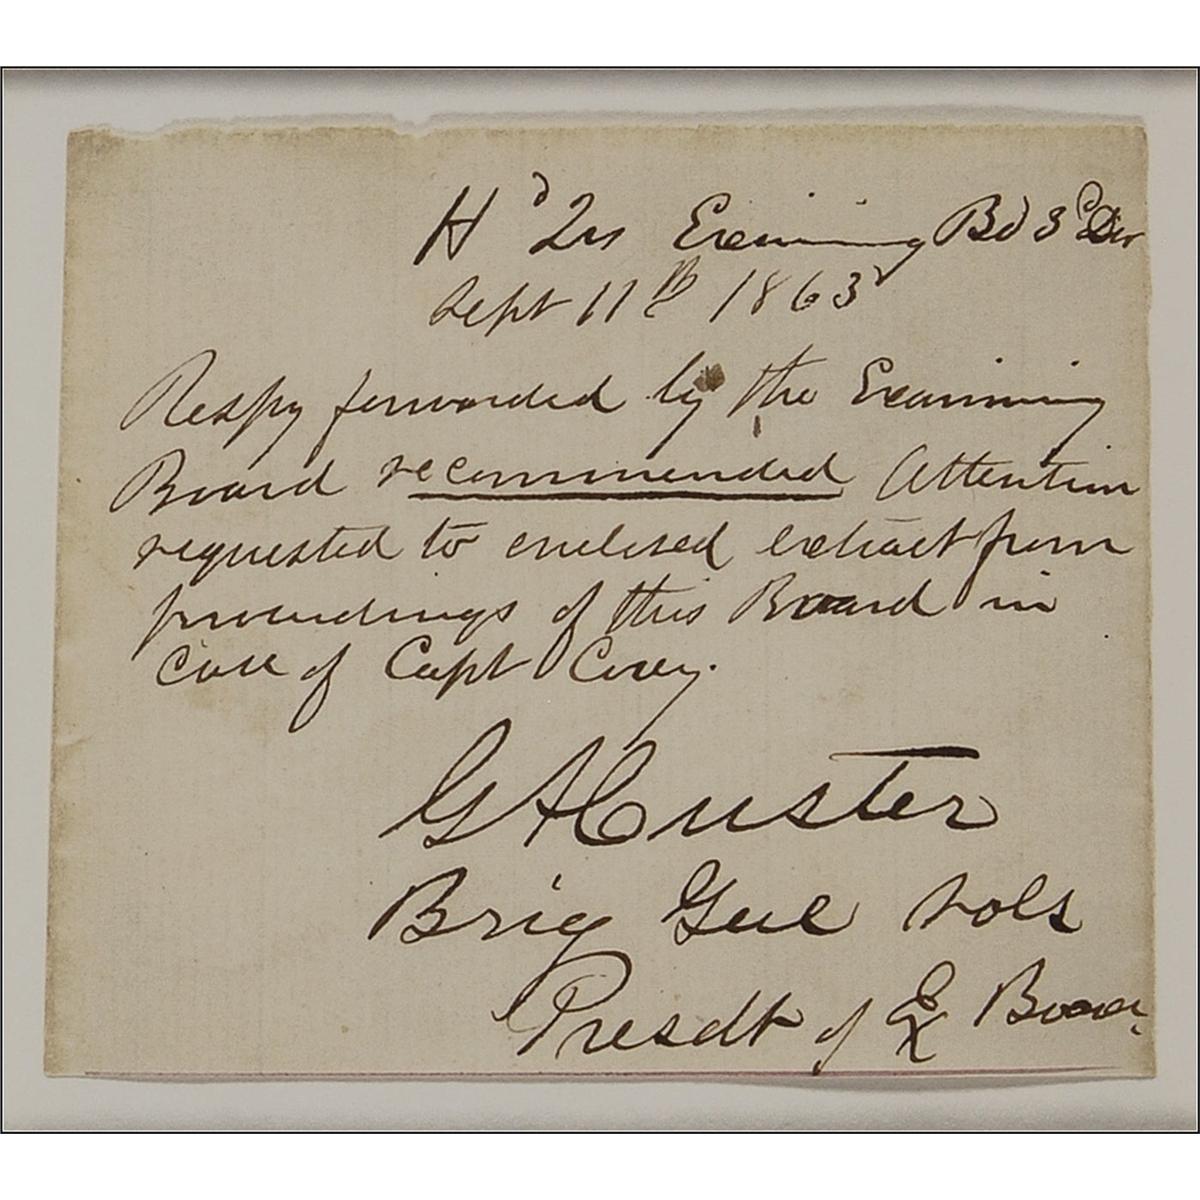 Hd Qrs Examining Bd 3d Div
Sept 11th 1863
Respy forwarded by the Examining
Board recommended Attention
requested to enclosed extract from
proceedings of this Board in
case of Capt
G A Custer
Brig Genl Vols
Presdt of Ex Board